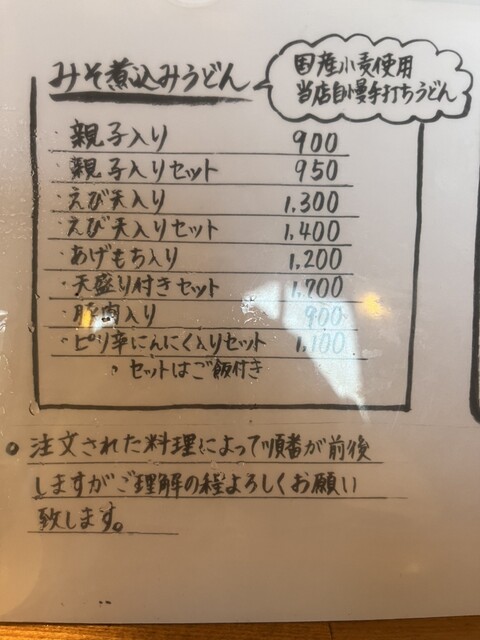 みそ煮込みうどん
国産小麦使用
当店自慢手打ちうどん
・親子入り 900
・親子入りセット 950
・えび天入り 1,300
・えび天入りセット 1,400
・あげもち入り 1,200
・天盛り付きセット 1,700
・豚肉入り 900
・ピリ辛にんにく入りセット 1,100
・セットはご飯付き
○注文された料理によって順番が前後
しますがご理解の程よろしくお願い
致します。